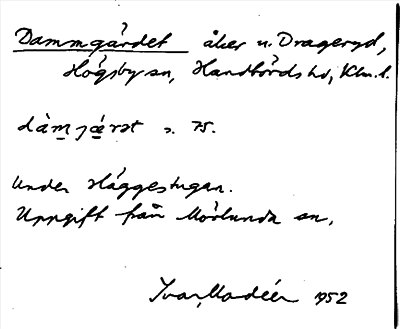 Dammgärdet åker u. Drageryd,
Högsby sn, Handbörds hd, Klm. l.
dàmjæ̀rət s. 75.
Under Häggestugan.
Uppgift från Mörlunda sn.
Ivar Modéer 1952